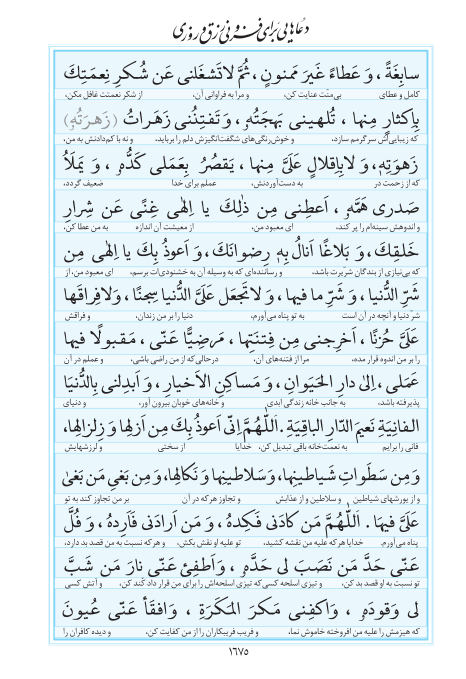 دعاهایی برای فزونی رزق و روزی
سابِغَةً ، وَ عَطاءً غَیرَ مَمنونٍ ، ثُمَّ لاتَشغَلنی عَن شُکرِ نِعمَتِكَ
کامل و عطای بی‌منت عنایت کن، و مرا به فراوانی آن، از شکر نعمتت غافل مکن،
بِاِکثارٍ مِنها ، تُلهینی بَهجَتُهُ ، وَ تَفتِنُنی زَهَراتُ (زَهرَتُهُ)
که زیبایی‌اش سرگرمم سازد، و خوش‌رنگی‌های شگفت‌انگیزش دلم را برباید، و نه با کم‌دادنش به من،
زَهوَتِهِ، وَ لابِاِقلالٍ عَلَیَّ مِنها ، یَقصُرُ بِعَمَلی کَدُّهُ ، وَ یَملَأُ
که از زحمت در به دست‌آوردنش، عملم برای خدا ضعیف گردد،
صَدری هَمُّهُ ، اَعطِنی مِن ذٰلِكَ یا اِلٰهی غِنًی عَن شِرارِ
و اندوهش سینه‌ام را پر کند، ای معبود من، از معیشت آن اندازه به من عطا کن،
خَلقِكَ ، وَ بَلاغًا اَنالُ بِهِ رِضوانَكَ ، وَ اَعوذُ بِكَ یا اِلٰهی مِن
که بی‌نیازی از بندگان شرّیرت باشد، و رساننده‌ای که به وسیله آن به خشنودی‌ات برسم، ای معبود من، از
شَرِّ الدُّنیا ، وَ شَرِّ ما فیها ، وَ لاتَجعَل عَلَیَّ الدُّنیا سِجنًا ، وَلافِراقَها
شر دنیا و آنچه در آن است به تو پناه می‌آورم، دنیا را بر من زندان، و فراقش
عَلَیَّ حُزنًا ، اَخرِجنی مِن فِتنَتِها ، مَرضِیًّا عَنّی ، مَقبولًا فیها
را بر من اندوه قرار مده، مرا از فتنه‌های آن، درحالی‌که از من راضی باشی، و عملم در آن
عَمَلی ، اِلیٰ دارِ الحَیَوانِ ، وَ مَساکِنِ الاَخیارِ ، وَ اَبدِلنی بِالدُّنیَا
پذیرفته باشد، به جانب خانه زندگی ابدی و خانه‌های خوبان بیرون آور، و دنیای
الفانِیَةِ نَعیمَ الدّارِ الباقِیَةِ . اَللّٰهُمَّ اِنّی اَعوذُ بِكَ مِن اَزلِها وَ زِلزالِها،
فانی را برایم به نعمت خانه باقی تبدیل کن، خدایا از سختی و لرزشهایش
وَ مِن سَطَواتِ شَیاطینِها، وَ سَلاطینِها وَ نَکالِها، وَ مِن بَغیِ مَن بَغیٰ
و از یورشهای شیاطین و سلاطین و از عذابش و تجاوز هرکه در آن بر من تجاوز کند به تو
عَلَیَّ فیها . اَللّٰهُمَّ مَن کادَنی فَکِدهُ ، وَ مَن اَرادَنی فَاَرِدهُ ، وَ فُلَّ
پناه می‌آورم. خدایا هرکه علیه من نقشه کشید، تو علیه او نقش بکش، و هرکه نسبت به من قصد بد دارد،
عَنّی حَدَّ مَن نَصَبَ لی حَدَّهُ ، وَ اَطفِئ عَنّی نارَ مَن شَبَّ
تو نسبت به او قصد بد کن، و تیزی اسلحه کسی که تیزی اسلحه‌اش را برای من قرار داد کند کن، و آتش کسی
لی وَقودَهُ ، وَ اکفِنی مَکرَ المَکَرَةِ ، وَ افقَأ عَنّی عُیونَ
که هیزمش را علیه من افروخته خاموش نما، و فریب فریبکاران را از من کفایت کن، و دیده کافران را
۱۶۷۵